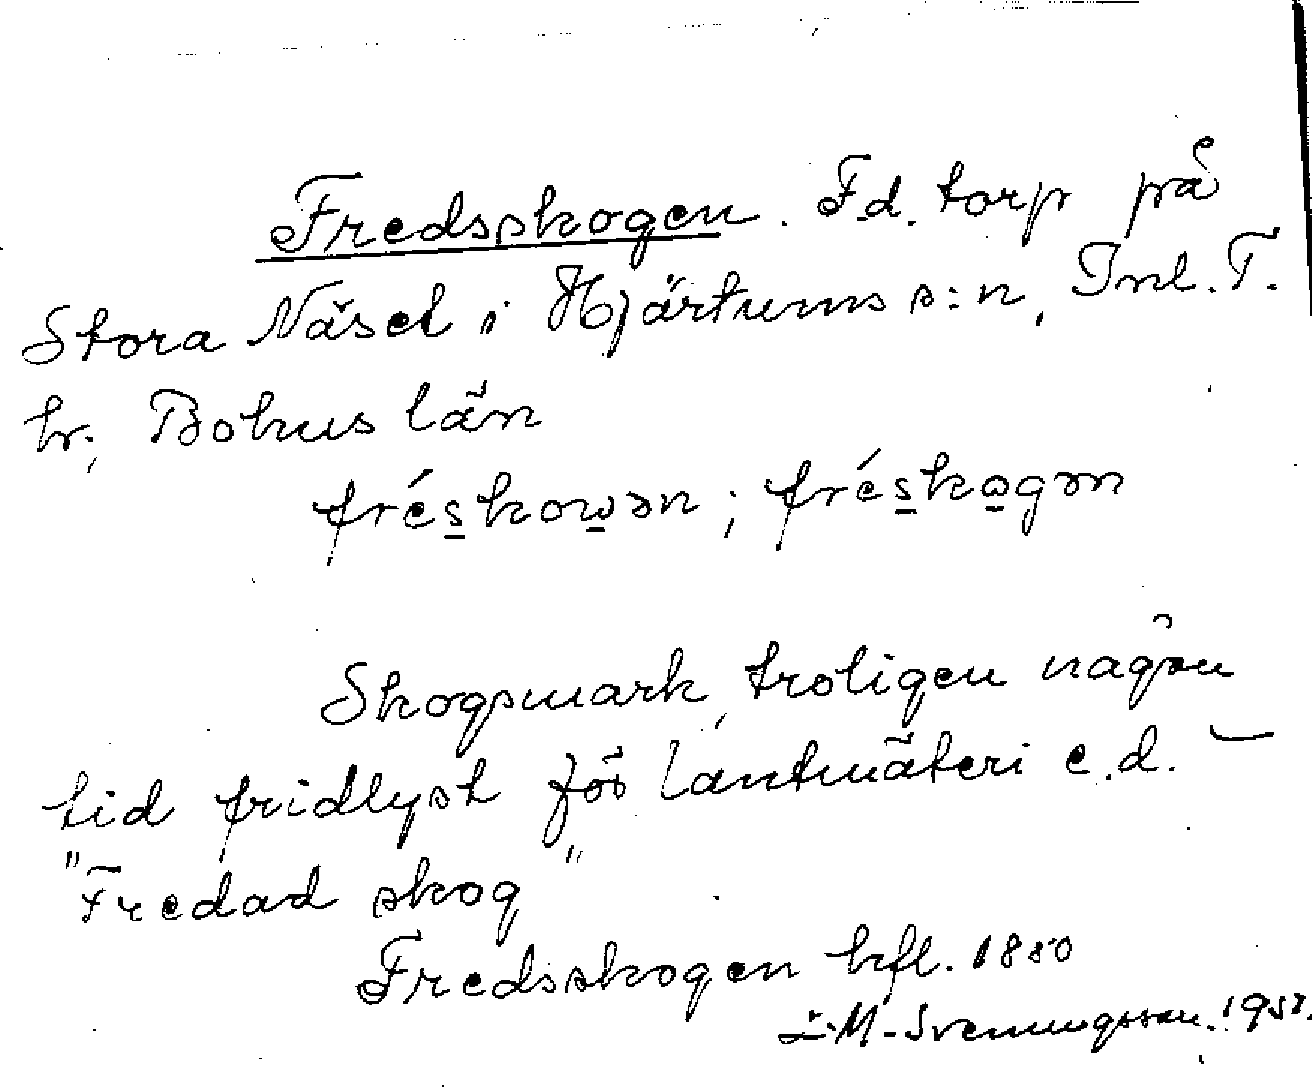 Fredsskogen. F.d. torp på
Stora Näset i Hjärtums s:n, Inl. T.
hr, Bohus län
fréskowən ; fréskogən
Skogsmark, troligen någon
tid fridlyst för lantmäteri e.d. –
"Fredad skog"
Fredsskogen hfl. 1880
M. Svenungsson. 195